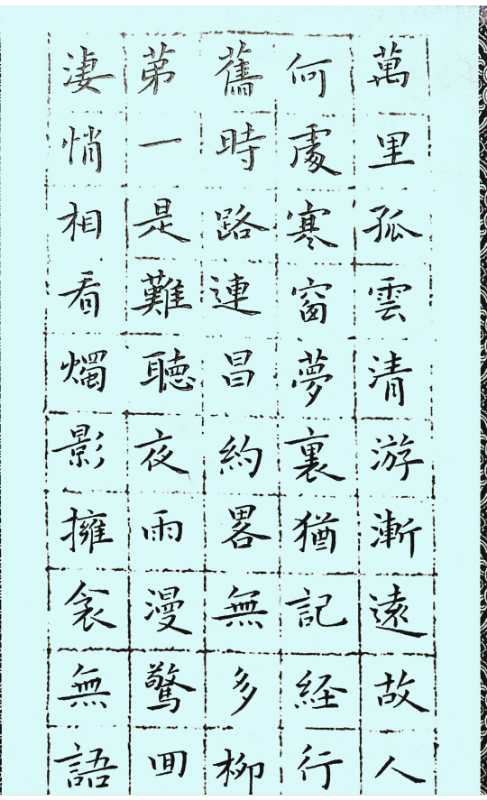 萬里孤雲清游漸遠故人
何處寒窗夢裏猶記経行
舊時路連昌約畧無多柳
苐一是難聽夜雨漫驚囬
淒悄相看燭影擁衾無語